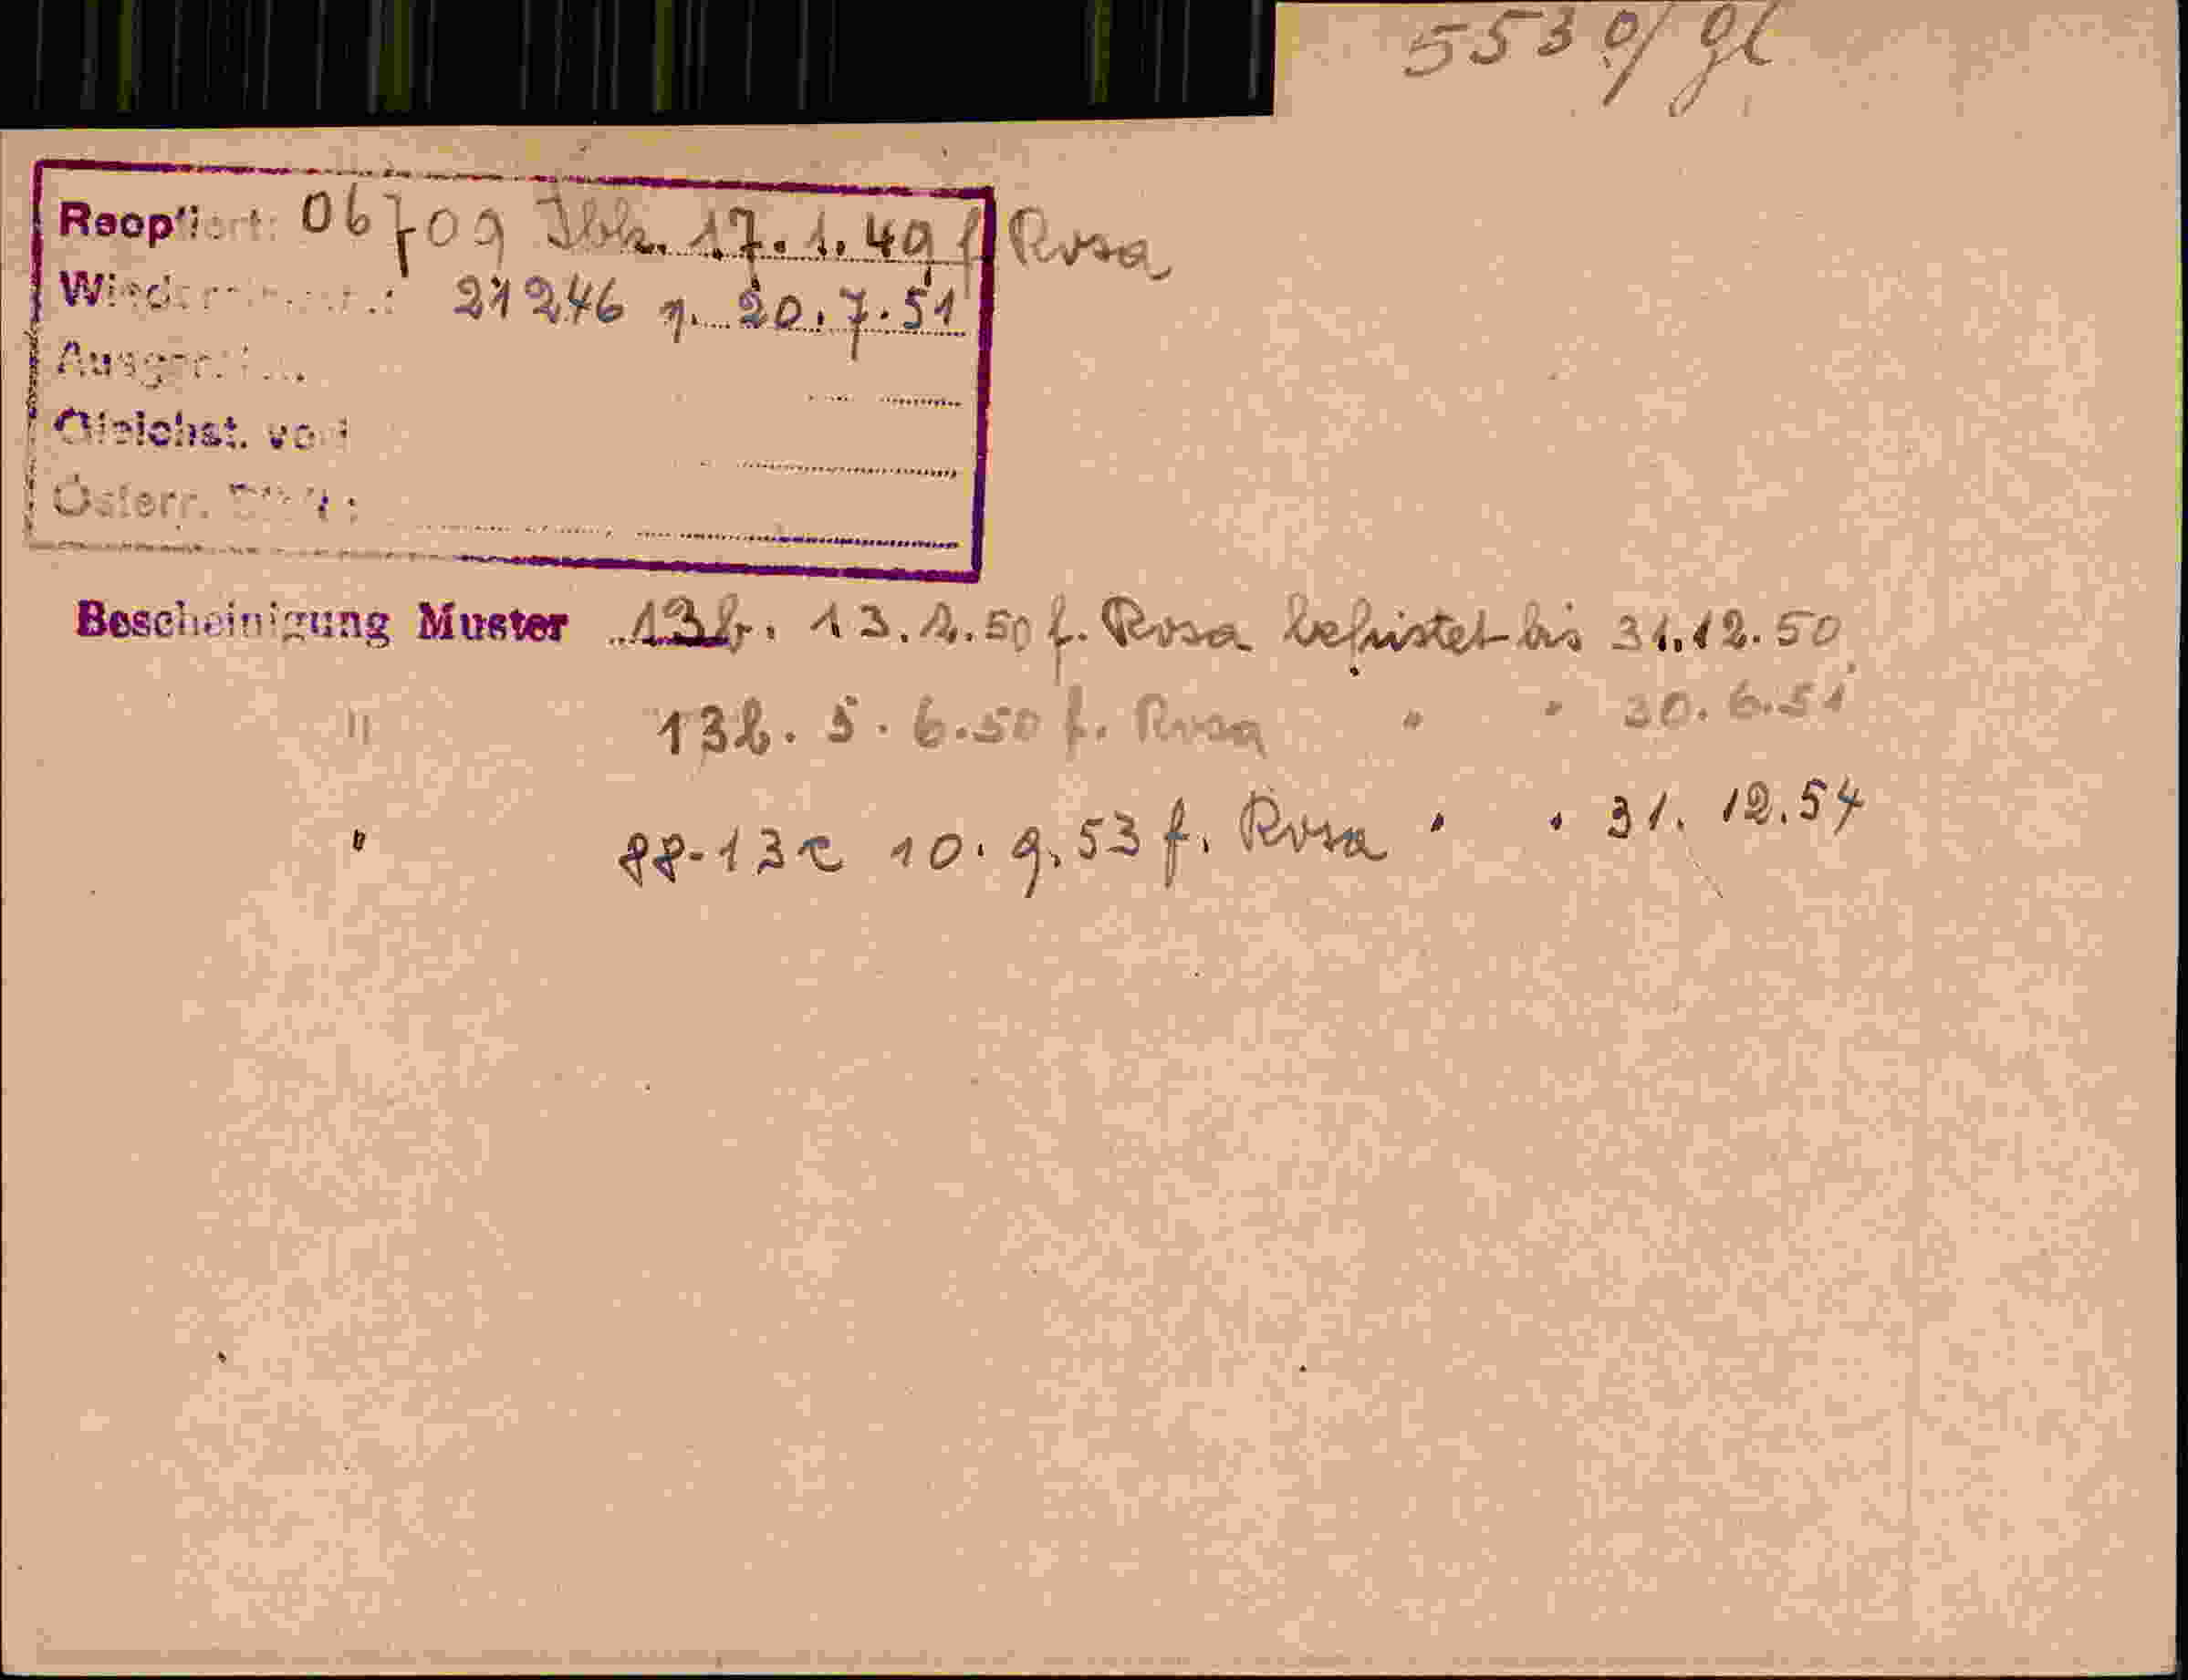 5530/gl
Reoptiert: 06709 Ibk. 17.1.49 f. Rosa
21246 20.7.51
Gleichst. von
Österr.
Bescheinigung Muster 13b. 13.2.50 f. Rosa befristet bis 31.12.50
" 13b. 5.6.50 f. Rosa " " 30.6.51
" 13c 10.9.53 f. Rosa " " 31.12.54